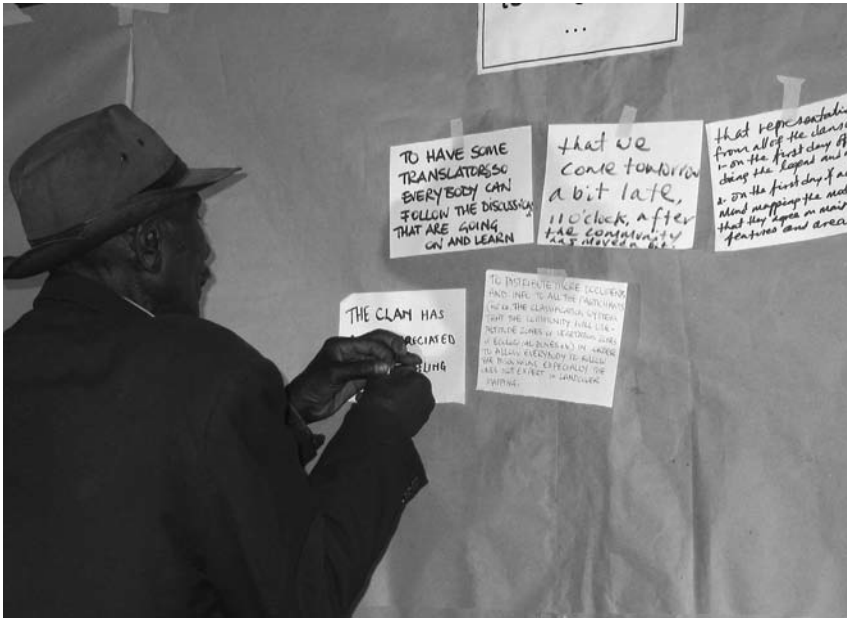 ...
TO HAVE SOME
TRANSLATORS SO
EVERYBODY CAN
FOLLOW THE DISCUSSIONS
THAT ARE GOING
ON AND LEARN
that we
come tomorrow
a bit late,
11 o'clock, after
the community
has moved
that representati
from all of the clans
1- on the first day of
doing the legend and
2. on the first day of
mind mapping the
that they agree on main
features and area
THE CLAN HAS
RECIATED
LING
TO DISTRIBUTE MORE DOCUMENTS
AND INFO TO ALL THE PARTICIPANTS
THE CLASSIFICATION SYSTEM
THAT THE COMMUNITY WILL USE -
ALTITUDE ZONES or VEGETATION ZONES
or ECOLOGICAL ZONES IN ORDER
TO ALLOW EVERYBODY TO FOLLOW
THE DISCUSSIONS ESPECIALLY THE
ONES NOT EXPERT IN LANDCOVER
MAPPING.